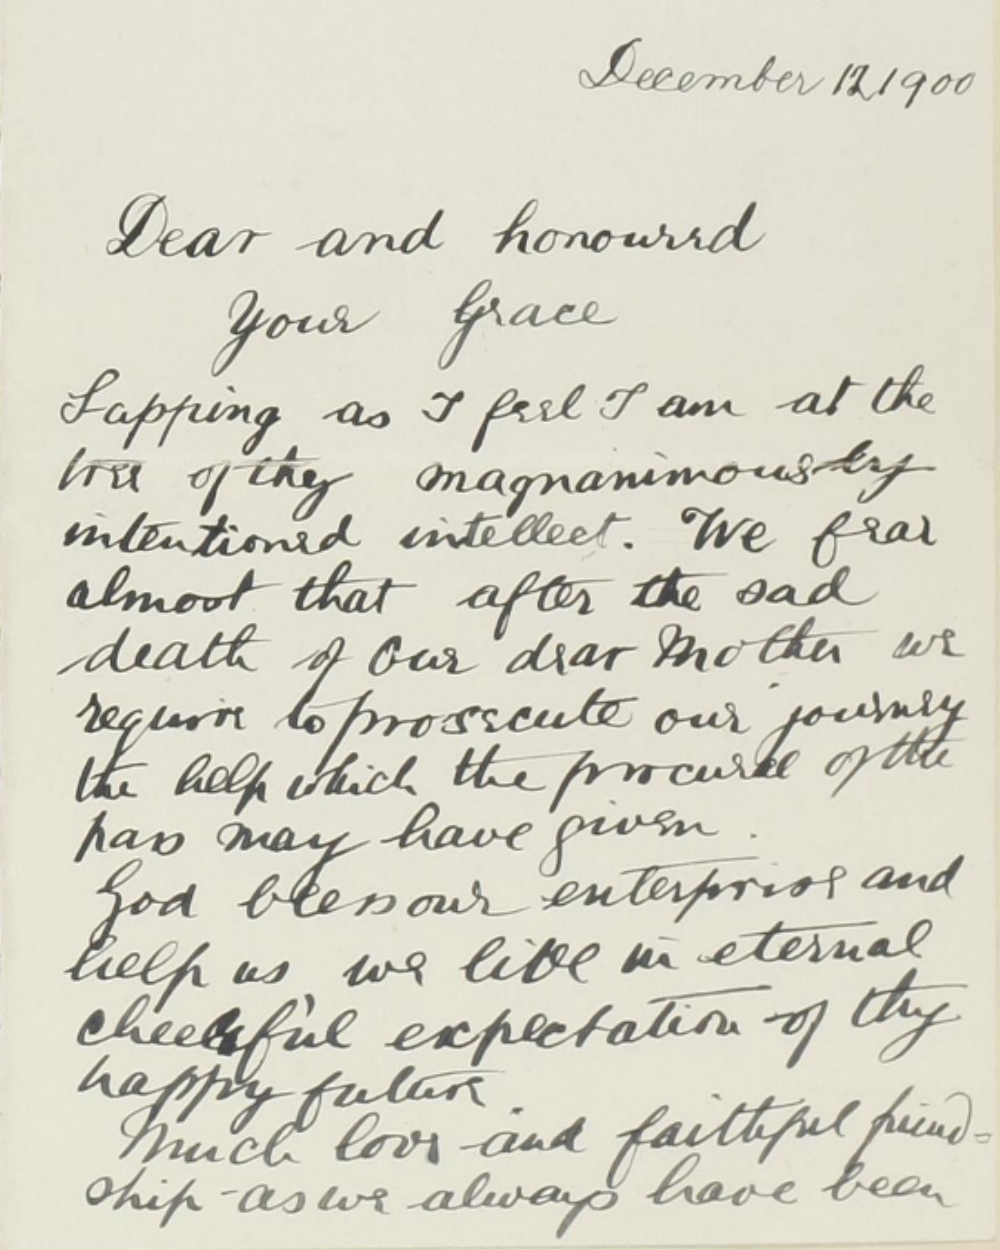 December 12 1900
Dear and honoured
Your Grace
Sapping as I feel I am at the
tree of thy magnanimously
intentioned intellect. We fear
almost that after the sad
death of our dear Mother we
require to prosecute our journey
the help which the procural of the
pass may have given.
God bless our enterprise and
help us we live in eternal
cheerful expectation of thy
happy future.
Much love and faithful friend-
ship - as we always have been